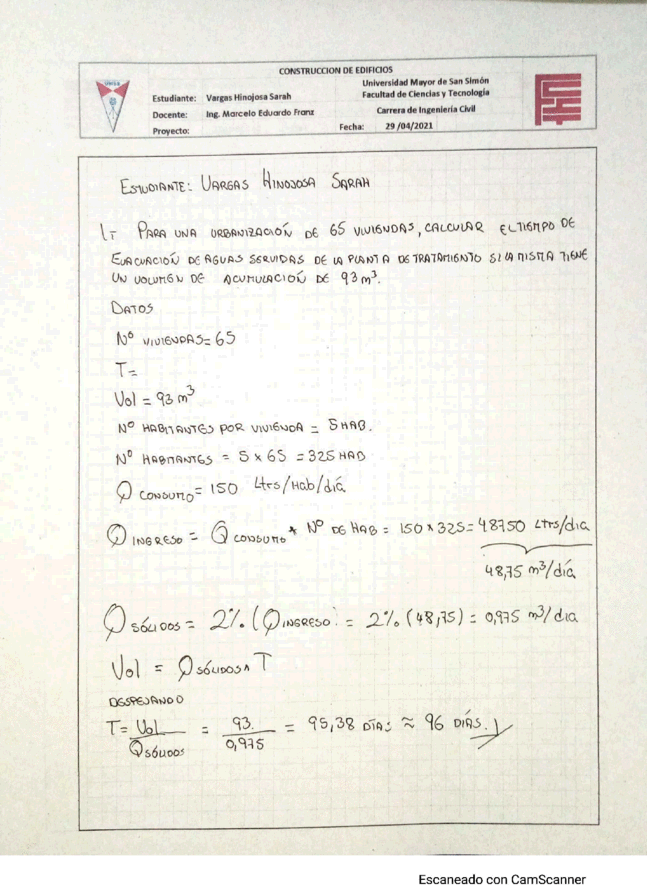 CONSTRUCCION DE EDIFICIOS
UMSS
Universidad Mayor de San Simón
Facultad de Ciencias y Tecnología
Carrera de Ingeniería Civil
Estudiante: Vargas Hinojosa Sarah
Docente: Ing. Marcelo Eduardo Franz
Proyecto:
Fecha: 29 /04/2021
ESTUDIANTE: VARGAS HINOJOSA SARAH
1.- PARA UNA URBANIZACIÓN DE 65 VIVIENDAS, CALCULAR EL TIEMPO DE
EVACUACIÓN DE AGUAS SERVIDAS DE LA PLANTA DE TRATAMIENTO SI LA MISMA TIENE
UN VOLUMEN DE ACUMULACIÓN DE 93 m³.
DATOS
Nº VIVIENDAS= 65
T=
Vol = 93 m³
Nº HABITANTES POR VIVIENDA = 5 HAB.
Nº HABITANTES = 5 x 65 = 325 HAB
Q CONSUMO = 150 Ltrs/Hab/día
Q INGRESO = Q CONSUMO * Nº DE HAB = 150 x 325 = 48750 Ltrs/dia
48,75 m³/día
Q SÓLIDOS = 2% (Q INGRESO) = 2% (48,75) = 0,975 m³/dia
Vol = Q SÓLIDOS * T
DESPEJANDO
T = Vol / Q SÓLIDOS = 93 / 0,975 = 95,38 DÍAS ≈ 96 DÍAS.
Escaneado con CamScanner